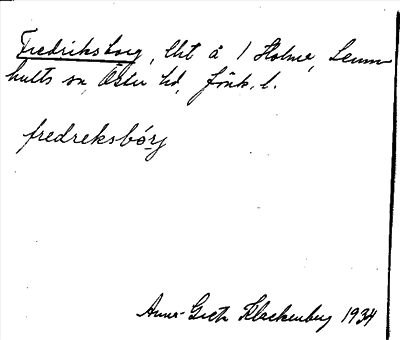 Fredriksborg, lht å 1 Holme, Lemn-
hults sn, Östra hd, Jönk. l.
fredreksbórj
Anna-Greta Klackenberg 1934